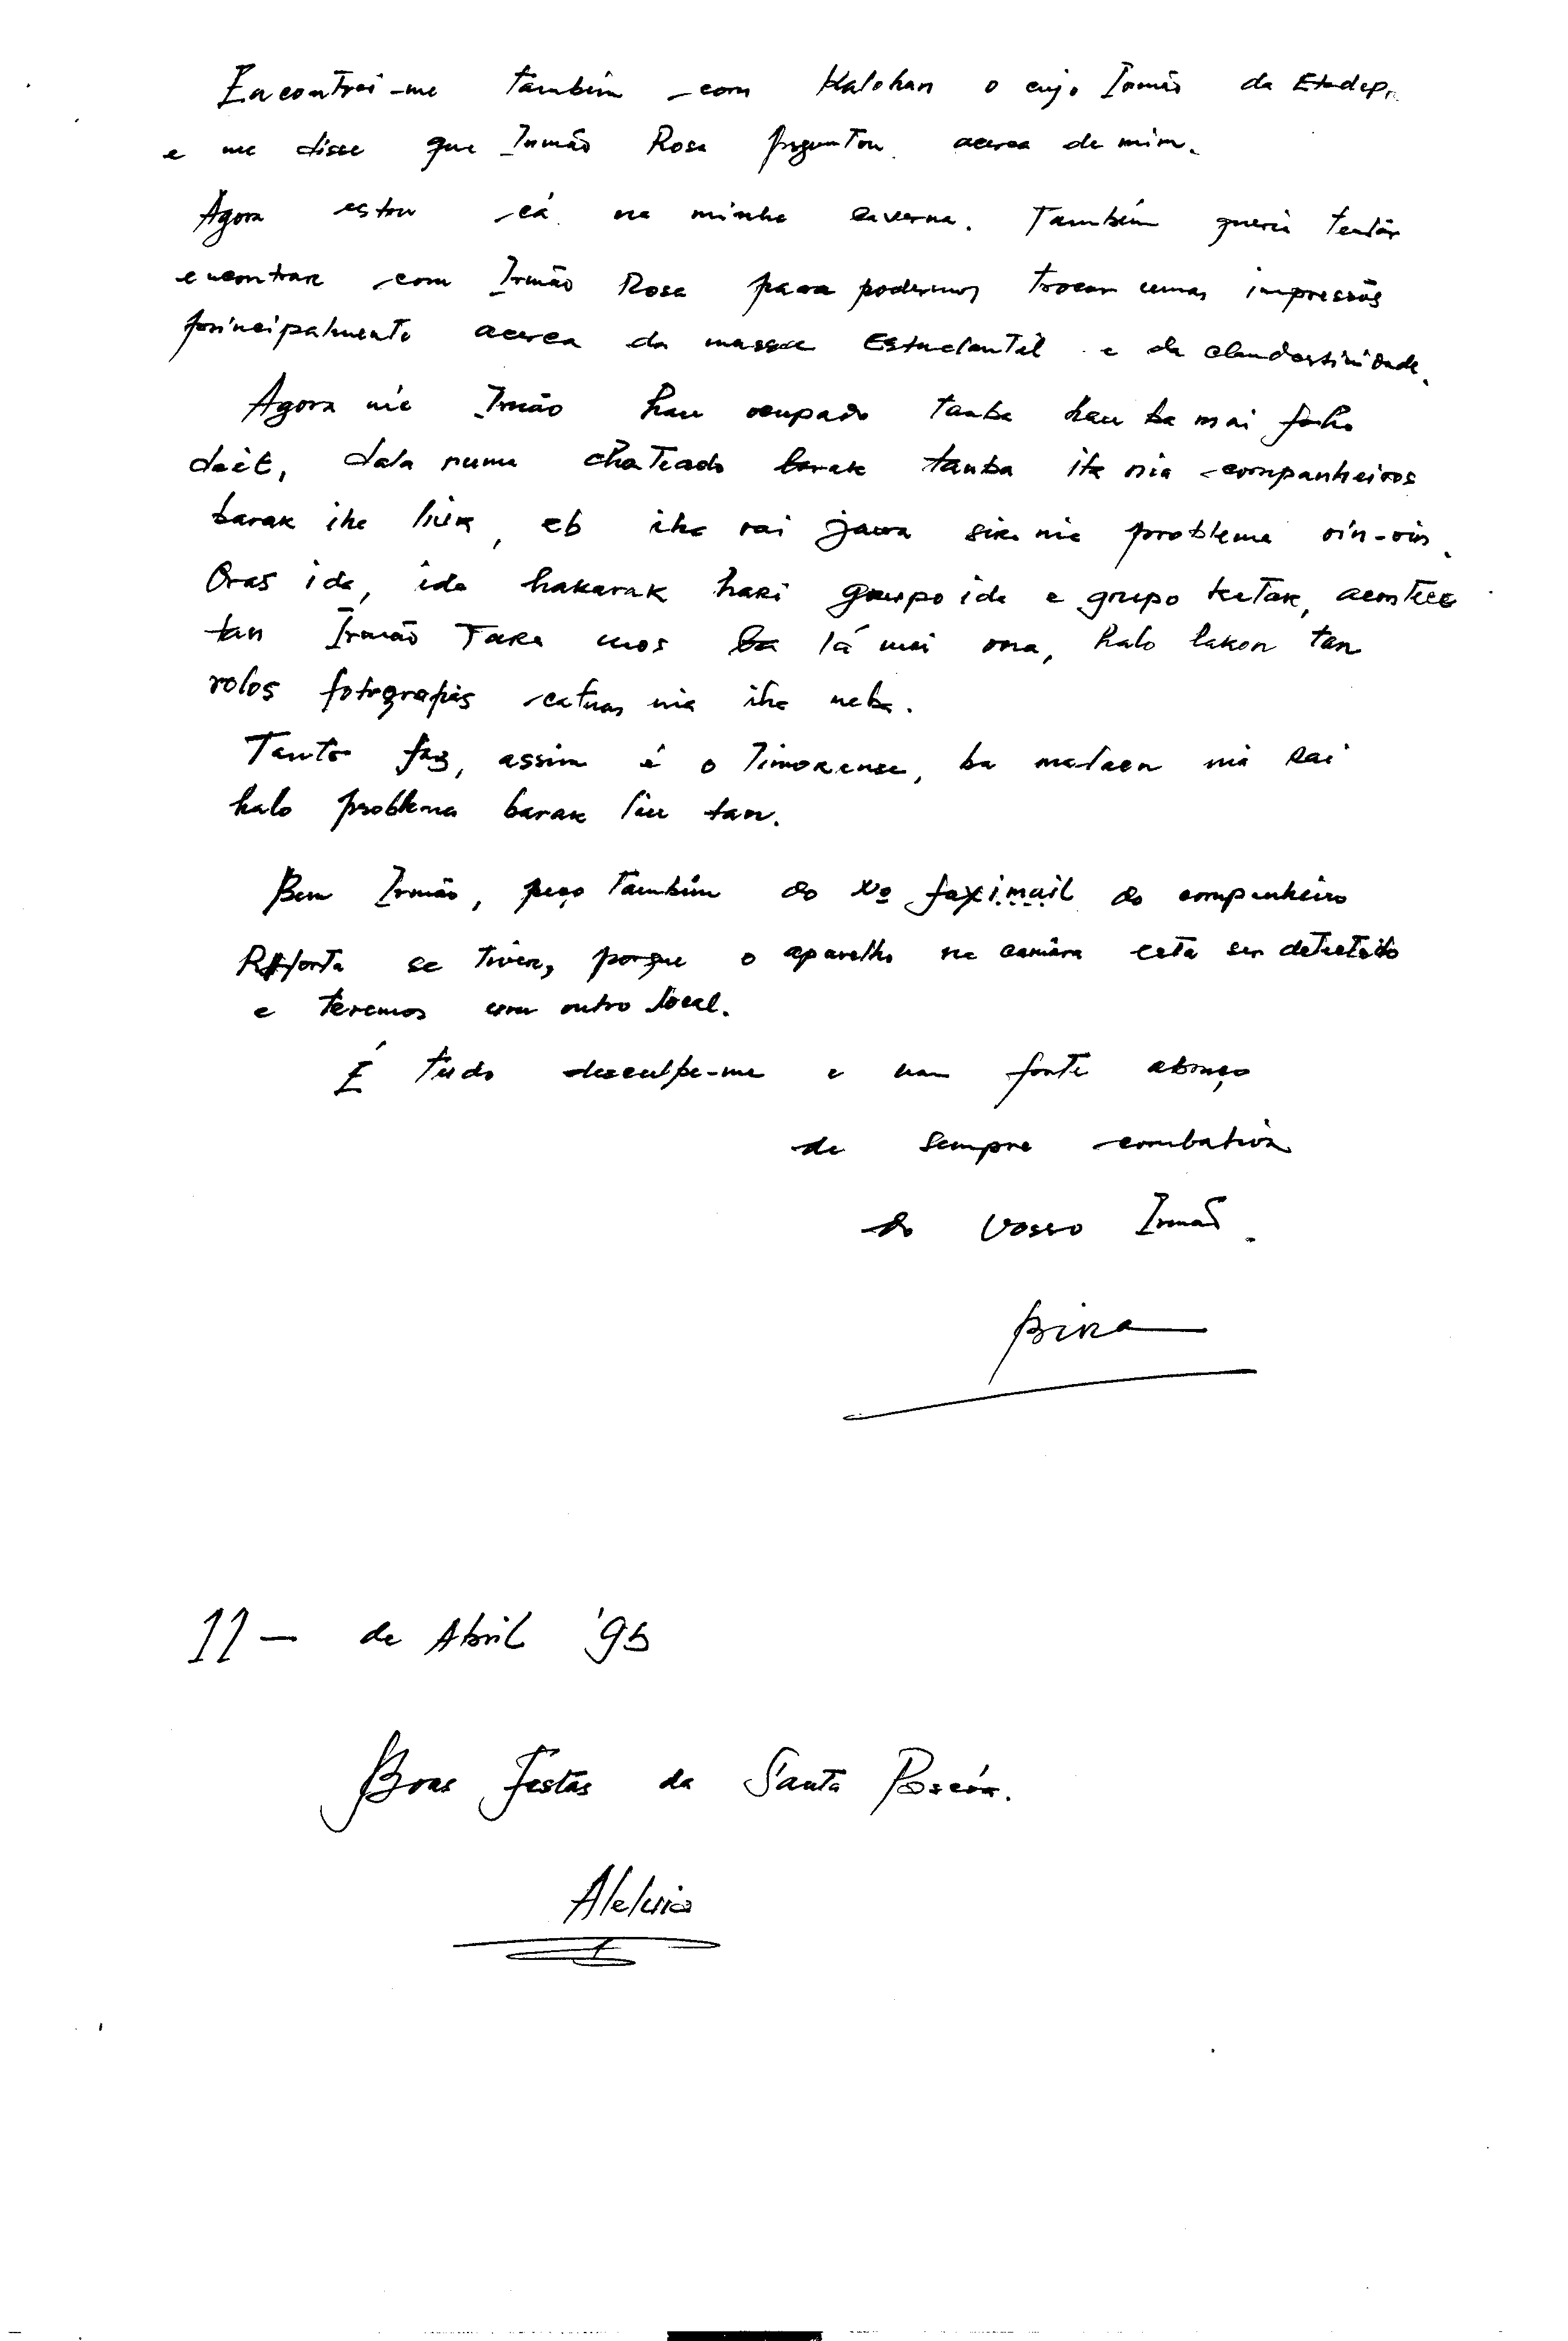 Encontrei-me também com Kalohan o cujo Irmão da
e me disse que Irmão Rosa preguntou acerca de mim.
Agora estou cá na minha caverna. Também queria tentar
encontrar com Irmão Rosa para podermos trocar umas impressões
principalmente acerca da massa Estudantil e da clandestinidade.
Agora nie Irmão hau ocupado tanba hau ba mai
deèt, dala ruma chateado barak tanba ita nia companheiros
barak ihe liur, eb ihe rai jawa sira nia problema oin-oin.
Oras ida, ida hakarak hari grupo ida e grupo ketak, acontece
tan Irmão Taka mos lá mai ona, halo lakon tan
rolos fotografias catuas nia ihe neba.
Tanto faz, assim é o Timorense, ba malaen nia rai
halo problema barak liu tan.
Bem Irmão, peço também do Nº faximail do companheiro
se tiver, porque o aparelho na camâra está ser detectado
e teremos com outro local.
É tudo desculpe-me e um forte abraço
de sempre combativa
do vosso Irmão.
11 - de Abril '95
Boas Festas da Santa Pascóa.
Aleluia